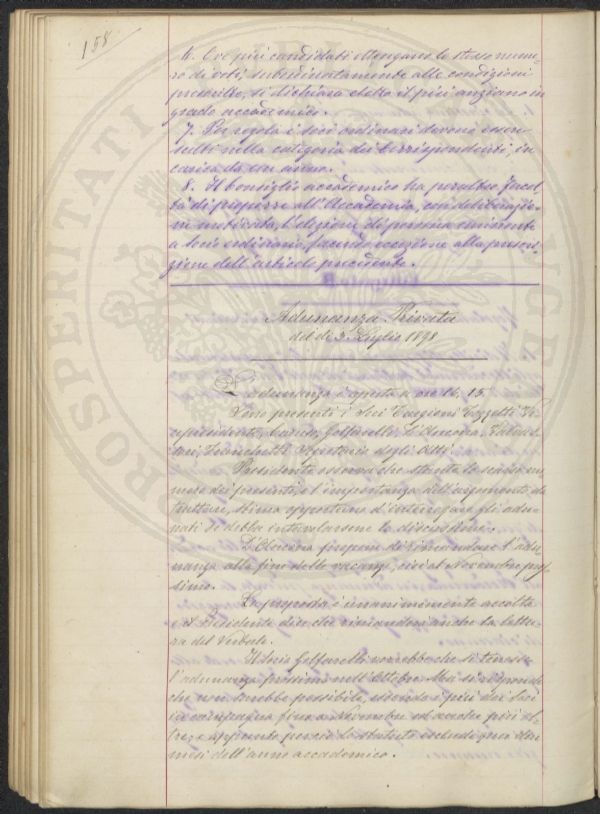 158
6. Ove più candidati ottengano lo stesso nume-
ro di voti, subordinatamente alle condizioni
prescritte, si dichiara eletto il più anziano in
grado accademico.
7. Per regola i soci ordinari devono essere
scelti nella categoria dei Corrispondenti, in
carica da un anno.
8. Il Consiglio accademico ha peraltro facol-
tà di proporre all'Accademia, con deliberazio-
ne motivata, l'elezione di persona eminente
a Socio ordinario, facendo eccezione alla prescri-
zione dell'articolo precedente.
Adunanza Privata
del dì 3 Luglio 1898
L'adunanza è aperta a ore 14, 15.
Sono presenti i Soci Targioni Tozzetti Vi-
cepresidente, Caruso, Golfarelli, D'Ancona,
Franchetti Segretario degli Atti.
Il Presidente osserva che stante lo scarso nu-
mero dei presenti, e l'importanza dell'argomento da
trattare, stima opportuno d'interrogare gli adu-
nati se debba intavolarsene la discussione.
D'Ancona propone di rimandare l'adu-
nanza alla fine delle vacanze, cioè al Novembre pros-
simo.
La proposta è unanimemente accolta
e il Presidente dice che rimandasi anche la lettu-
ra del Verbale.
Il Socio Golfarelli vorrebbe che si tenesse
l'adunanza prossima nell'Ottobre. Ma si risponde
che non sarebbe possibile, essendo i più dei Soci
in campagna fino a Novembre ed anche più ol-
tre; e appunto perciò lo statuto esclude quei due
mesi dell'anno accademico.
PROSPERITATI